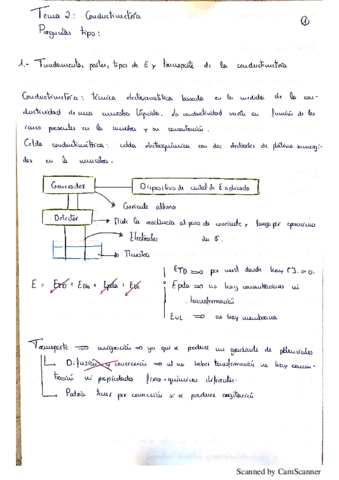 Tema 2: Conductimetría
①
Preguntas tipo:
1.- Fundamento, partes, tipos de E y transporte de la conductimetría
Conductimetría: técnica electroanalítica basada en la medida de la con-
ductividad de una muestra líquida. La conductividad varía en función de los
iones presentes en la muestra y su concentración.
Celda conductimétrica: celda electroquímica con dos electrodos de platino sumergi-
dos en la muestra.
Generador
Dispositivo de control de E aplicado
Corriente alterna
Detector
Mide la resistencia al paso de corriente, y luego por
Electrodos
su
Muestra
E = ETD + Ecm + Epda + EUL
ETD => por estar donde hay = 0.
Epda => no hay concentraciones ni
transformación
EUL => no hay membrana
Transporte => migración => ya que se produce un gradiente de potenciales
Difusión y convección => al no haber transformación no hay concen-
tración ni propiedades físico-químicas diferentes.
Podría haber por convección si se produce agitación
Scanned by CamScanner